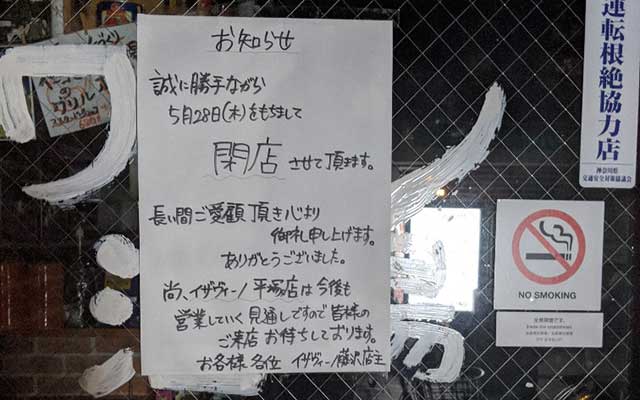 お知らせ
誠に勝手ながら
5月28日(木)をもちまして
閉店させて頂きます。
長い間ご愛顧頂き心より
御礼申し上げます。
ありがとうございました。
尚、イザヴィーノ平塚店は今後も
営業していく見通しですので皆様の
ご来店お待ちしております。
お各様各位 イザヴィーノ藤沢店主
運転根絶協力店
神奈川県
交通安全対策協議会
NO SMOKING
全席禁煙です。